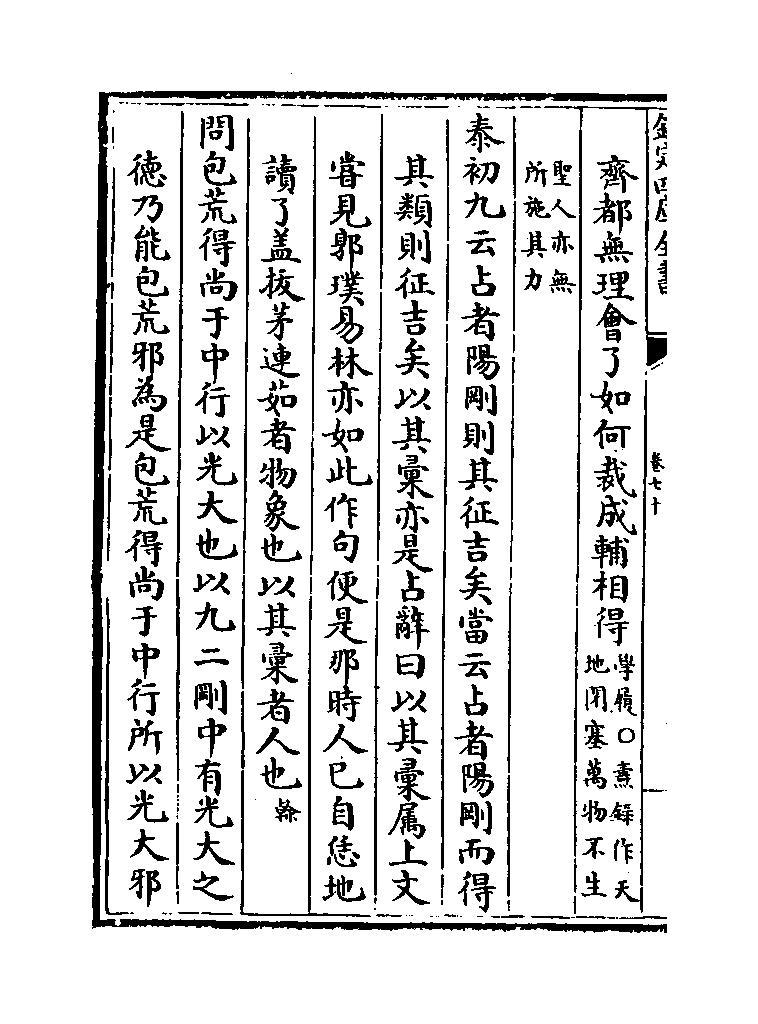 欽定四庫全書
卷七十
齊都無理會了如何裁成輔相得學履○燾錄作天
地閉塞萬物不生
聖人亦無
所施其力
泰初九云占者陽剛則其征吉矣當云占者陽剛而得
其類則征吉矣以其彙亦是占辭曰以其彙属上文
嘗見郭璞易林亦如此作句便是那時人已自恁地
讀了盖拔茅連茹者物象也以其彙者人也㽦
問包荒得尚于中行以光大也以九二剛中有光大之
徳乃能包荒邪為是包荒得尚于中行所以光大邪